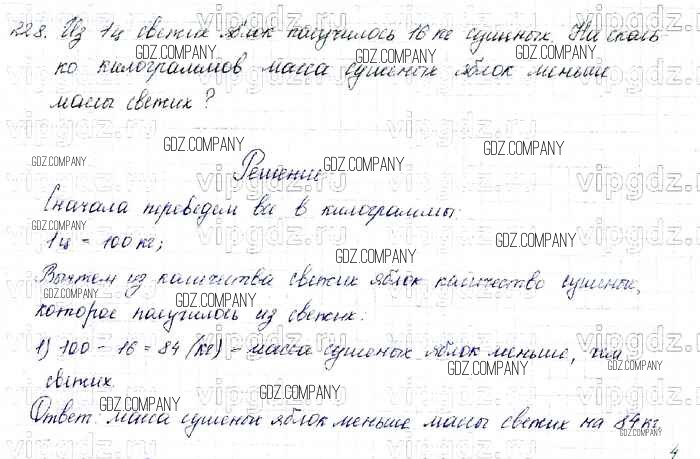 228. Из 1ц свежих яблок получилось 16 кг сушеных. На сколь
ко килограммов масса сушеных яблок меньше
массы свежих?
Решение
Сначала переведем все в килограммы:
1ц = 100кг;
Вычтем из количества свежих яблок количество сушеных,
которое получилось из свежих:
1) 100 - 16 = 84 (кг) - масса сушеных яблок меньше, чем
свежих.
Ответ: масса сушеных яблок меньше массы свежих на 84кг.
4
GDZ.COMPANY
vipgdz.ru